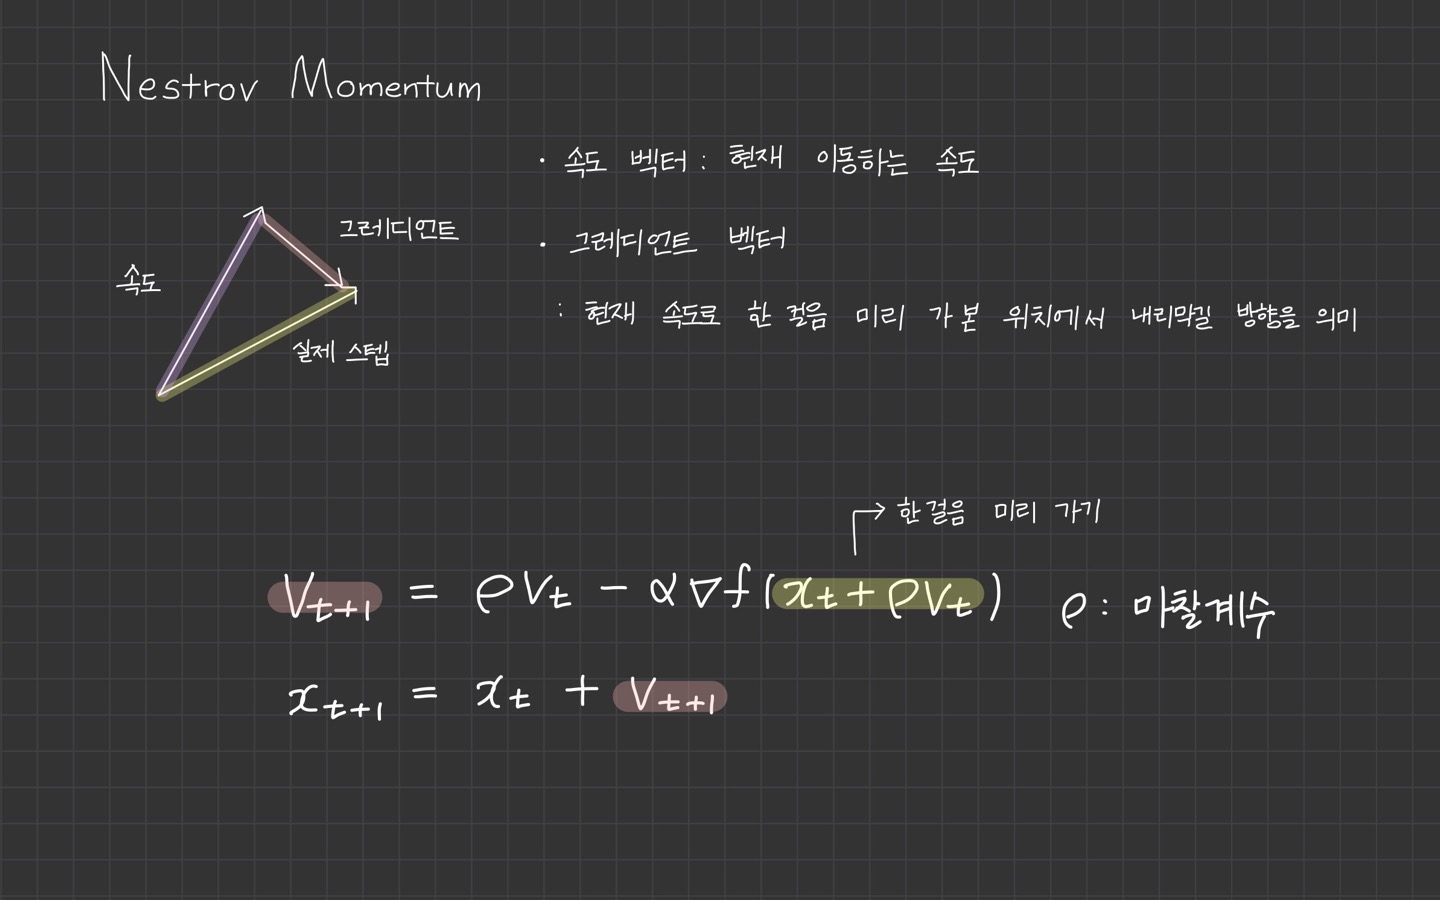 Nestrov Momentum
· 속도 벡터 : 현재 이동하는 속도
그레디언트
· 그레디언트 벡터
속도
: 현재 속도로 한 걸음 미리 가 본 위치에서 내리막길 방향을 의미
실제 스텝
한 걸음 미리 가기
V_{t+1} = ρV_t − α∇f(x_t + ρV_t)
ρ : 마찰계수
x_{t+1} = x_t + V_{t+1}